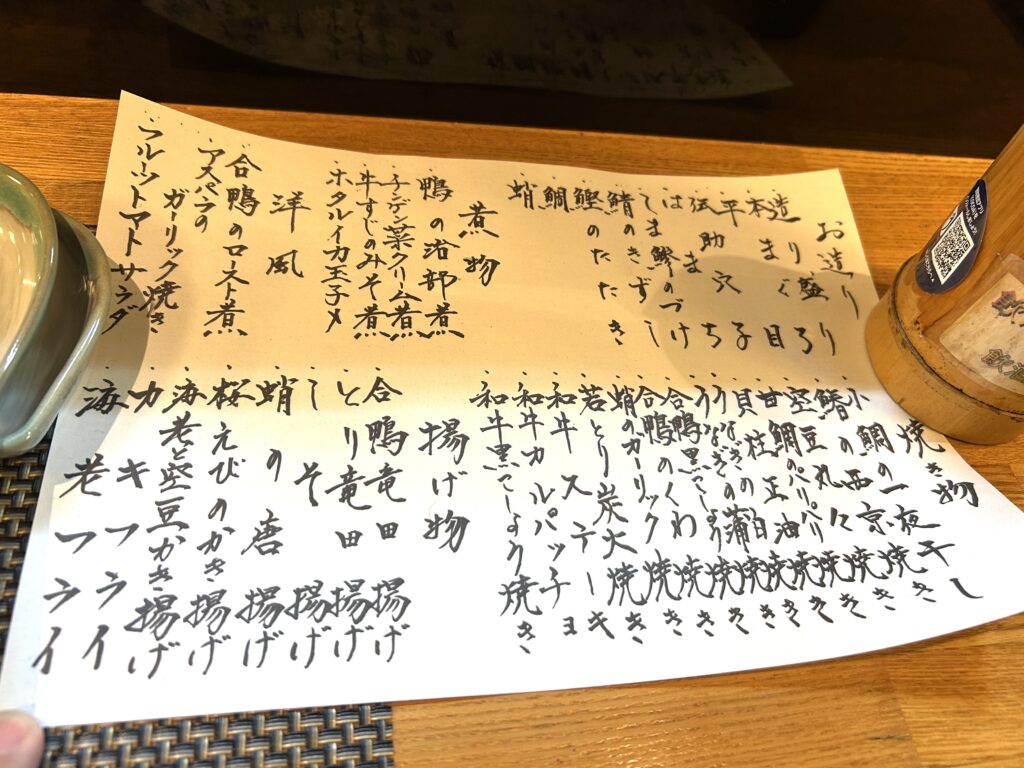 お造り
造り盛り
本まぐろ
平目
伝助穴子
はまち
しま鯵のづけ
鯖のきずし
鰹のたたき
鯛
蛸
煮物
鴨の治部煮
牛すじのみそ煮
ホタルイカ玉子〆
洋風
合鴨のロースト煮
アスパラの
ガーリック焼き
フルーツトマトサラダ
焼き物
小鯛の一夜干し
鰆の西京焼き
空豆丸々焼き
甘鯛のパリパリ焼き
貝柱正油焼き
うなぎの白焼き
うなぎの蒲焼き
合鴨黒こしょう焼き
合鴨のくわ焼き
蛸のガーリック焼き
若とり炭火焼き
和牛ステーキ
和牛カルパッチョ
和牛黒こしょう焼き
揚げ物
合鴨竜田揚げ
とり竜田揚げ
しそ揚げ
蛸の唐揚げ
桜えびのかき揚げ
海老と空豆かき揚げ
カキフライ
海老フライ